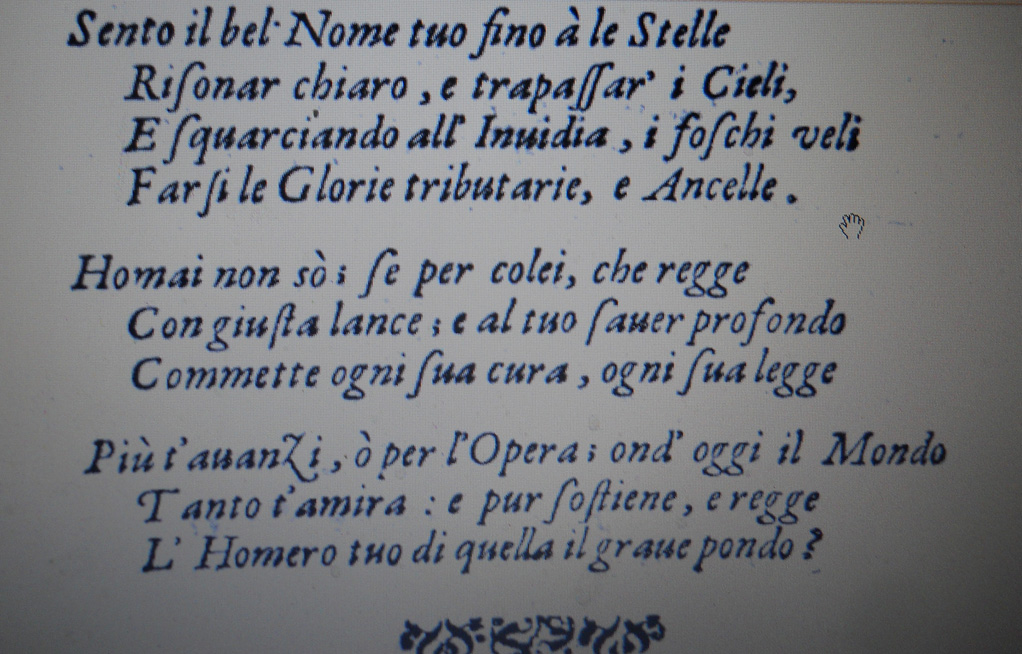 Sento il bel Nome tuo fino à le Stelle
Riſonar chiaro, e trapaſſar' i Cieli,
E ſquarciando all' Inuidia, i foſchi veli
Farſi le Glorie tributarie, e Ancelle.
Homai non sò; ſe per colei, che regge
Con giuſta lance; e al tuo ſauer profondo
Commette ogni ſua cura, ogni ſua legge
Più t'auanzi, ò per l'Opera; ond' oggi il Mondo
Tanto t'amira: e pur ſoſtiene, e regge
L' Homero tuo di quella il graue pondo?